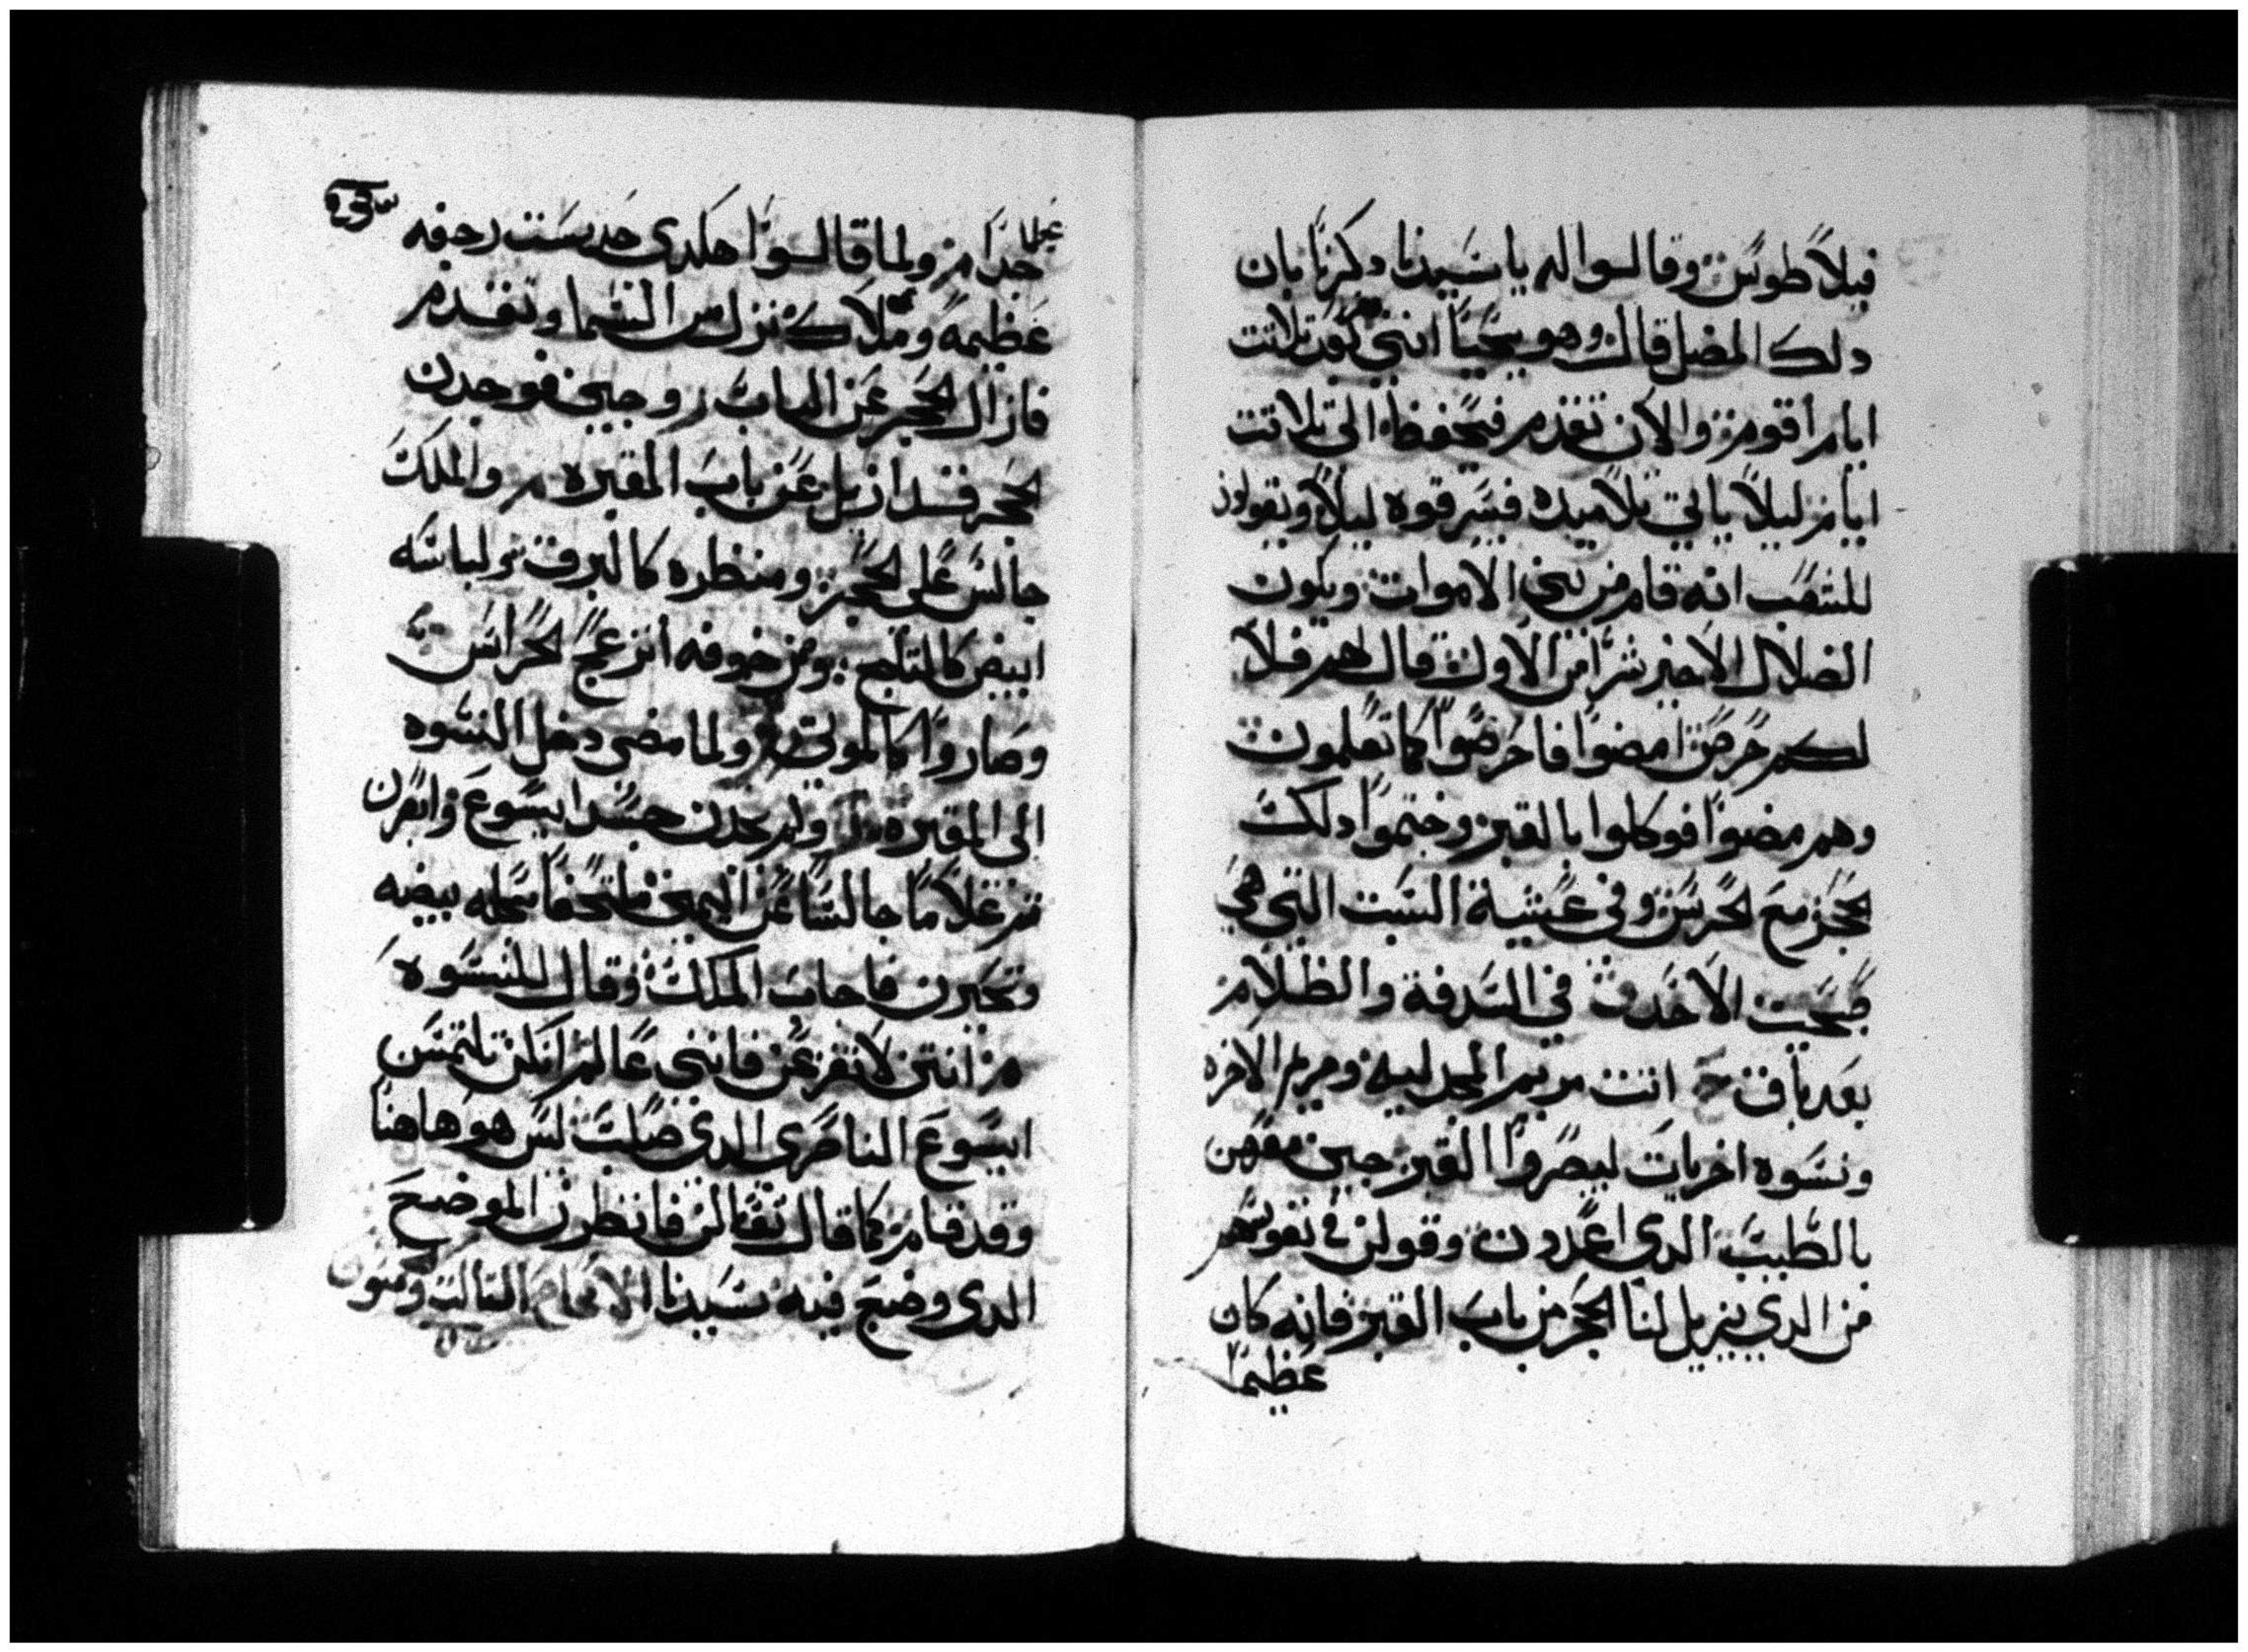 فيلاطوس وقالوا له يا سيدنا دكرنا بان
دلك المضل قال وهو يحيا انني بعد تلاتت
ايام اقوم والان تقدم فيحفظ الى تلاتت
ايام ليلا ياتي تلاميده فيسرقوه ليلا ويقولون
للشعب انه قام من بين الاموات ويكون
الضلال الاخير شرا من الاول قال لهم فلا
لكم حرص امضوا فاحرصوا كما تعلمون
وهم مضوا فوكلوا بالقبر وختموا دلك
الحجر مع الحرس وفي عشية السبت التي هي
صبحت الاحد في السدفة والظلام
بعد باق اتت مريم المجدلية ومريم الاخره
ونسوه اخريات ليبصروا القبر جبن معهن
بالطيب الدي اعددن وقولن في نفوسهم
من الدي يزيل لنا الحجر من باب القبر فانه كان
عظيما
جدا ولما قالوا هكدى حدست رجفه
عظيمة وملاك نزل من السما وتقدم
فازال الحجر عن الباب وجين فوجدن
الحجر قد ازيل عن باب المقبره والملك
جالس على الحجر ومنظره كالبرق ولباسه
ابيض كالتلج ومن خوفه انزعج الحراس
وصاروا كالموتى ولما مضى دخل النسوه
الى المقبره ولم يجدن جسد ايسوع وابصرن
تم غلاما جالسا عن اليمين ملتحفا بحله بيضه
وتحيرن فاجاب الملك وقال للنسوه
انتن لا تفزعن فانني عالم انكن تلتمسن
ايسوع الناصري الدي صلب ليس هو هاهنا
وقد قام كما قال تعالن فانظرن الموضع
الدي وضع فيه سيدنا الاصحاح التالت وستون